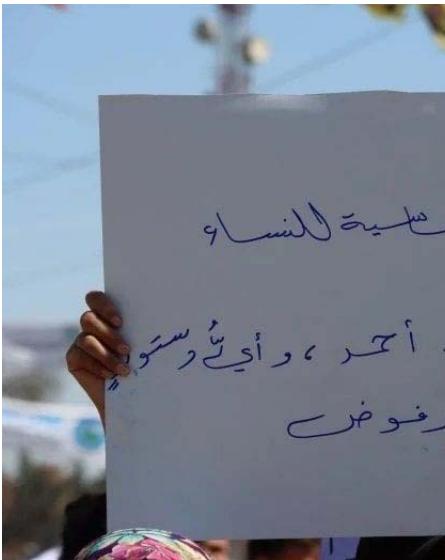 اسية للنساء
. أحمد ، وأيُّ دستورٍ
رفوض